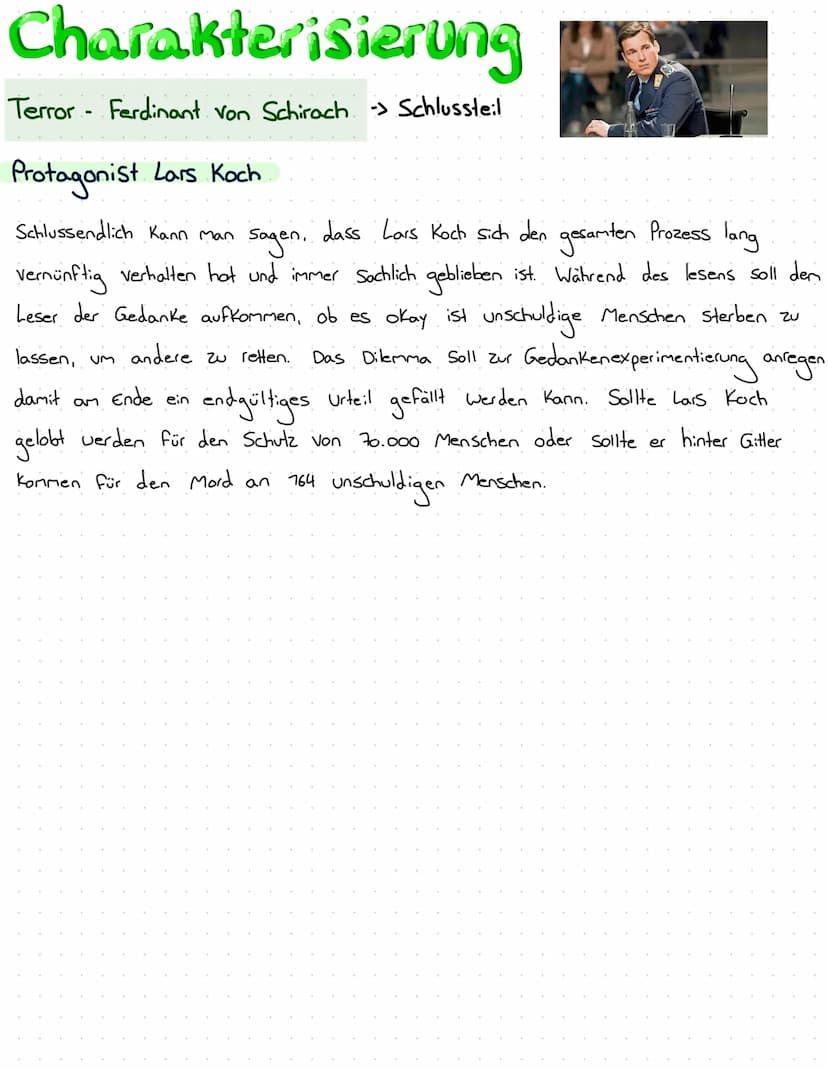 Charakterisierung
Terror - Ferdinant von Schirach -> Schlussteil
Protagonist Lars Koch
Schlussendlich kann man sagen, dass Lars Koch sich den gesamten Prozess lang
vernünftig verhalten hat und immer sachlich geblieben ist. Während des lesens soll dem
Leser der Gedanke aufkommen, ob es okay ist unschuldige Menschen sterben zu
lassen, um andere zu retten. Das Dilemma soll zur Gedankenexperimentierung anregen
damit am Ende ein endgültiges Urteil gefällt werden kann. Sollte Lars Koch
gelobt werden für den Schutz von 70.000 Menschen oder sollte er hinter Gitter
kommen für den Mord an 164 unschuldigen Menschen.